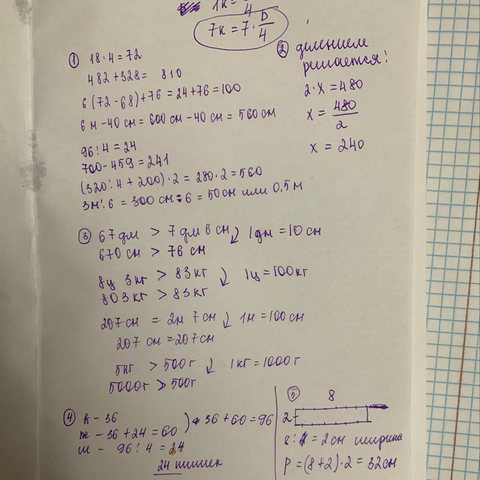 7к = 7 · D/4
① 18 · 4 = 72
482 + 328 = 810
6 (72 - 68) + 76 = 24 + 76 = 100
6 м - 40 см = 600 см - 40 см = 560 см
96 : 4 = 24
700 - 459 = 241
(320 : 4 + 200) · 2 = 280 · 2 = 560
3м : 6 = 300 см : 6 = 50 см или 0,5 м
② делением
решается!
2 · x = 480
x = 480/2
x = 240
③ 67 дм > 7 дм 6 см 1 дм = 10 см
670 см > 76 см
8ц 3 кг > 83 кг 1ц = 100 кг
803 кг > 83 кг
207 см = 2м 7 см 1м = 100 см
207 см = 207 см
5кг > 500г 1кг = 1000г
5000г > 500г
④ к - 36
ж - 36 + 24 = 60 36 + 60 = 96
ш - 96 : 4 = 24
24 шишек
⑤ 8
2
= 2 см ширина
P = (8 + 2) · 2 = 32 см